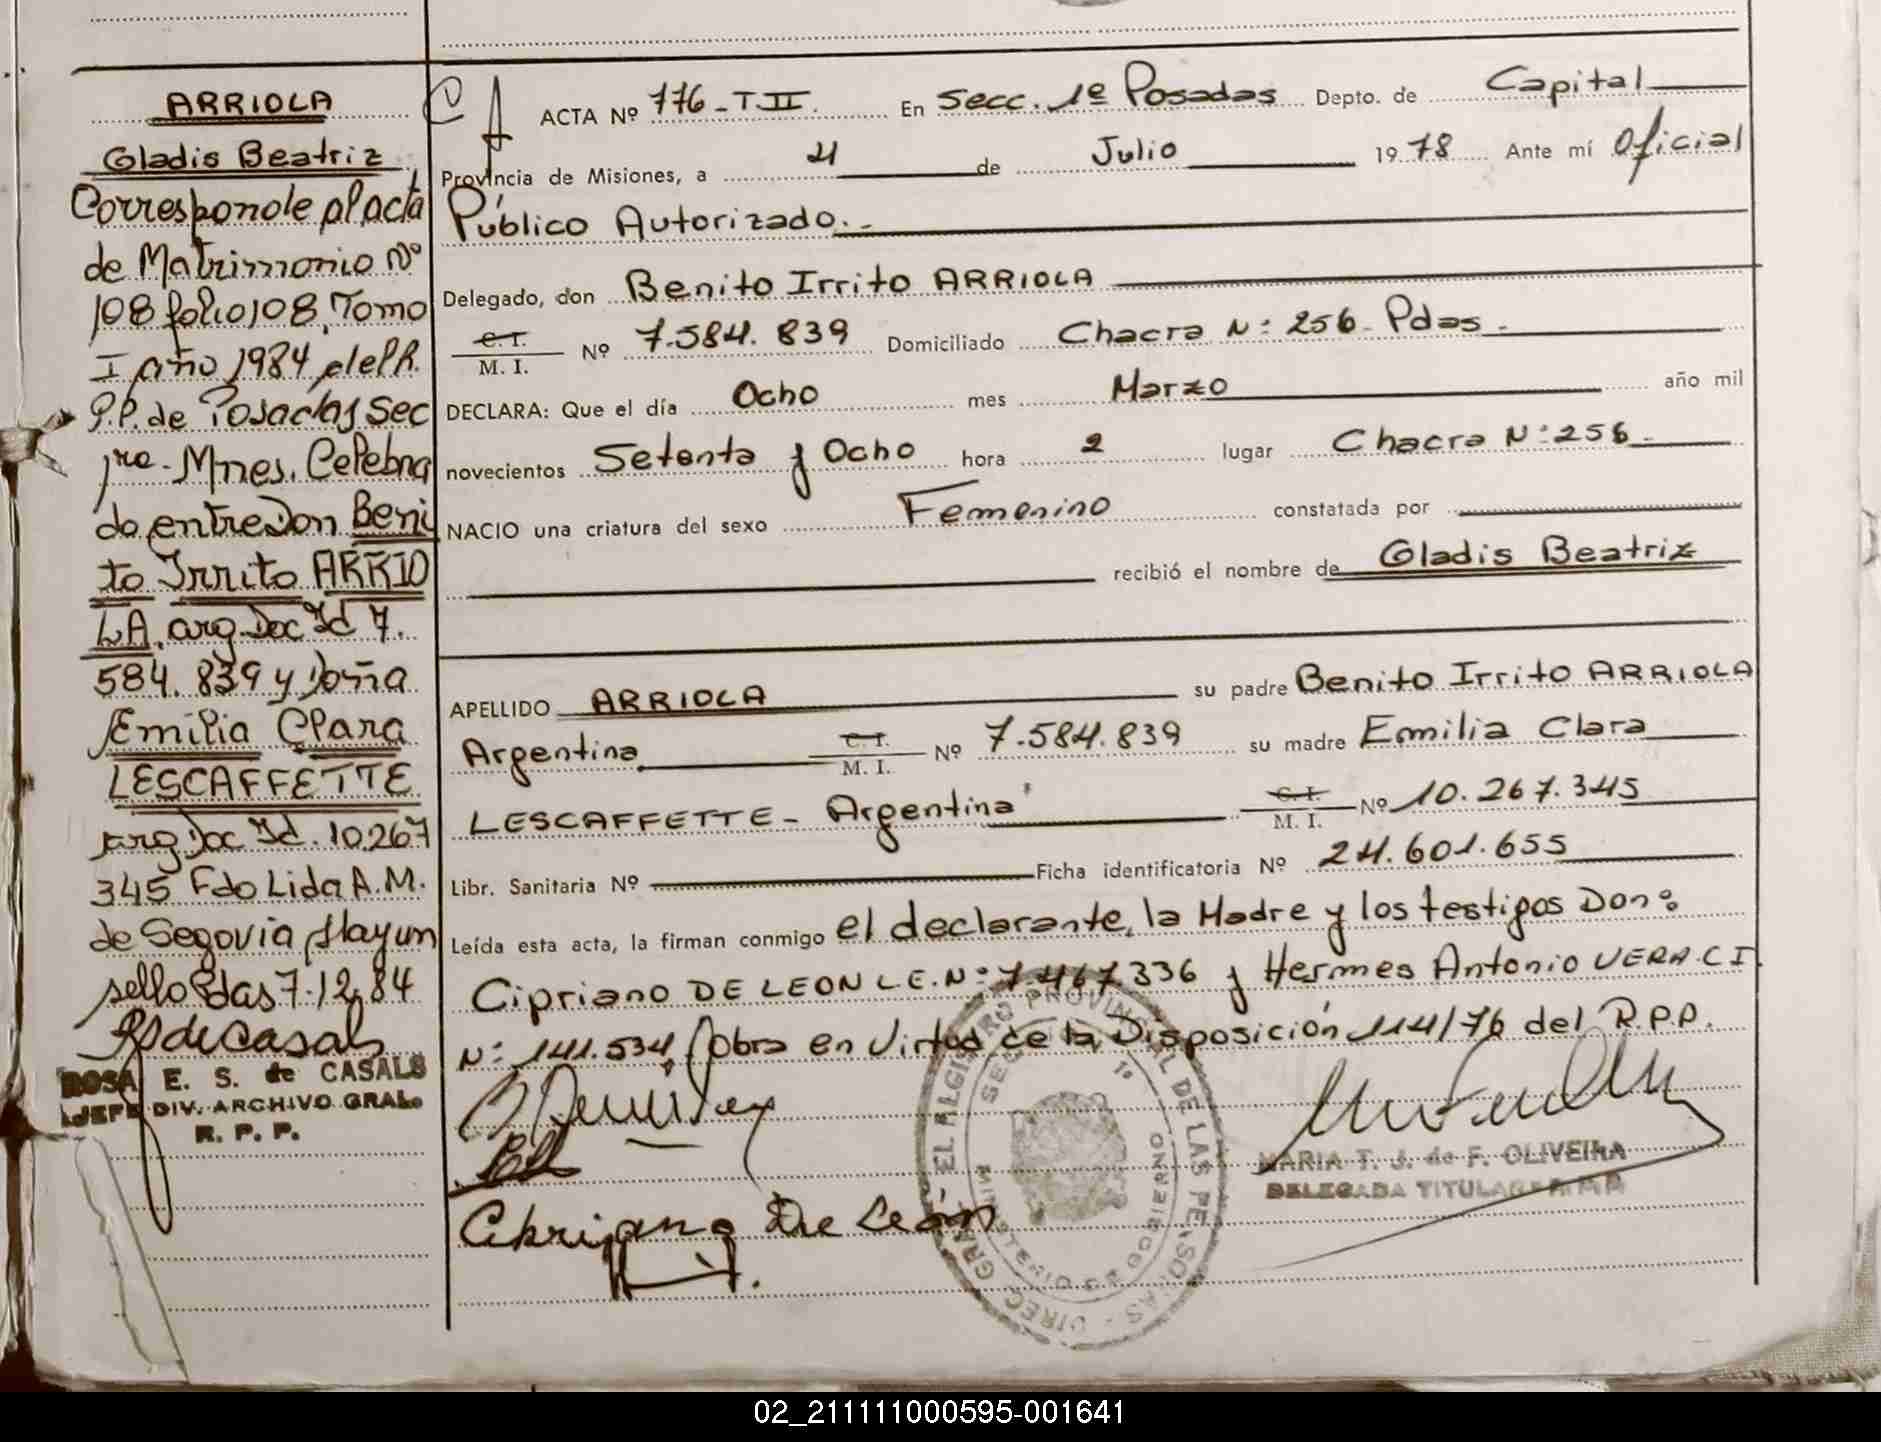 ARRIOLA
Gladis Beatriz
Corresponde al acta
de Matrimonio Nº
108 folio 108, Tomo
I año 1984 del R.
P.P. de Posadas Sec
1ra. Mnes. Celebra
do entre Don Beni
to Irrito ARRIO
LA, arg. Doc Id 7.
584.839 y Doña
Emilia Clara
LESCAFFETTE
arg Doc Id. 10.267
345 Fdo Lida A.M.
de Segovia Hay un
sello Pdas 7.12.84
ROSA E. S. de CASALS
JEFE DIV. ARCHIVO GRAL.
R. P. P.
ACTA Nº 776-T.II. En Secc. 1º Posadas Depto. de Capital
Provincia de Misiones, a 4 de Julio 1978 Ante mí Oficial
Público Autorizado.-
Delegado, don Benito Irrito ARRIOLA
C. I.
M. I. Nº 7.584.839 Domiciliado Chacra N: 256- Pdas.
DECLARA: Que el día Ocho mes Marzo año mil
novecientos Setenta y Ocho hora 2 lugar Chacra N: 256
NACIO una criatura del sexo Femenino constatada por
recibió el nombre de Gladis Beatriz
APELLIDO ARRIOLA su padre Benito Irrito ARRIOLA
Argentina C. I.
M. I. Nº 7.584.839 su madre Emilia Clara
LESCAFFETTE- Argentina C. I.
M. I. Nº 10.267.345
Libr. Sanitaria Nº Ficha identificatoria Nº 24.601.655
Leída esta acta, la firman conmigo el declarante, la Madre y los testigos Don:
Cipriano DE LEON L.E. N: 7.467.336 y Hermes Antonio VERA C.I
N: 141.534, Obra en Virtud de la Disposición 114/76 del R.P.P.
Cipriano De León
DIREC. GRAL. DEL REGISTRO PROVINCIAL DE LAS PERSONAS
SECC. 1º
MINISTERIO DE GOBIERNO
MARIA T. J. de F. OLIVEIRA
DELEGADA TITULAR R.P.P.
02_211111000595-001641